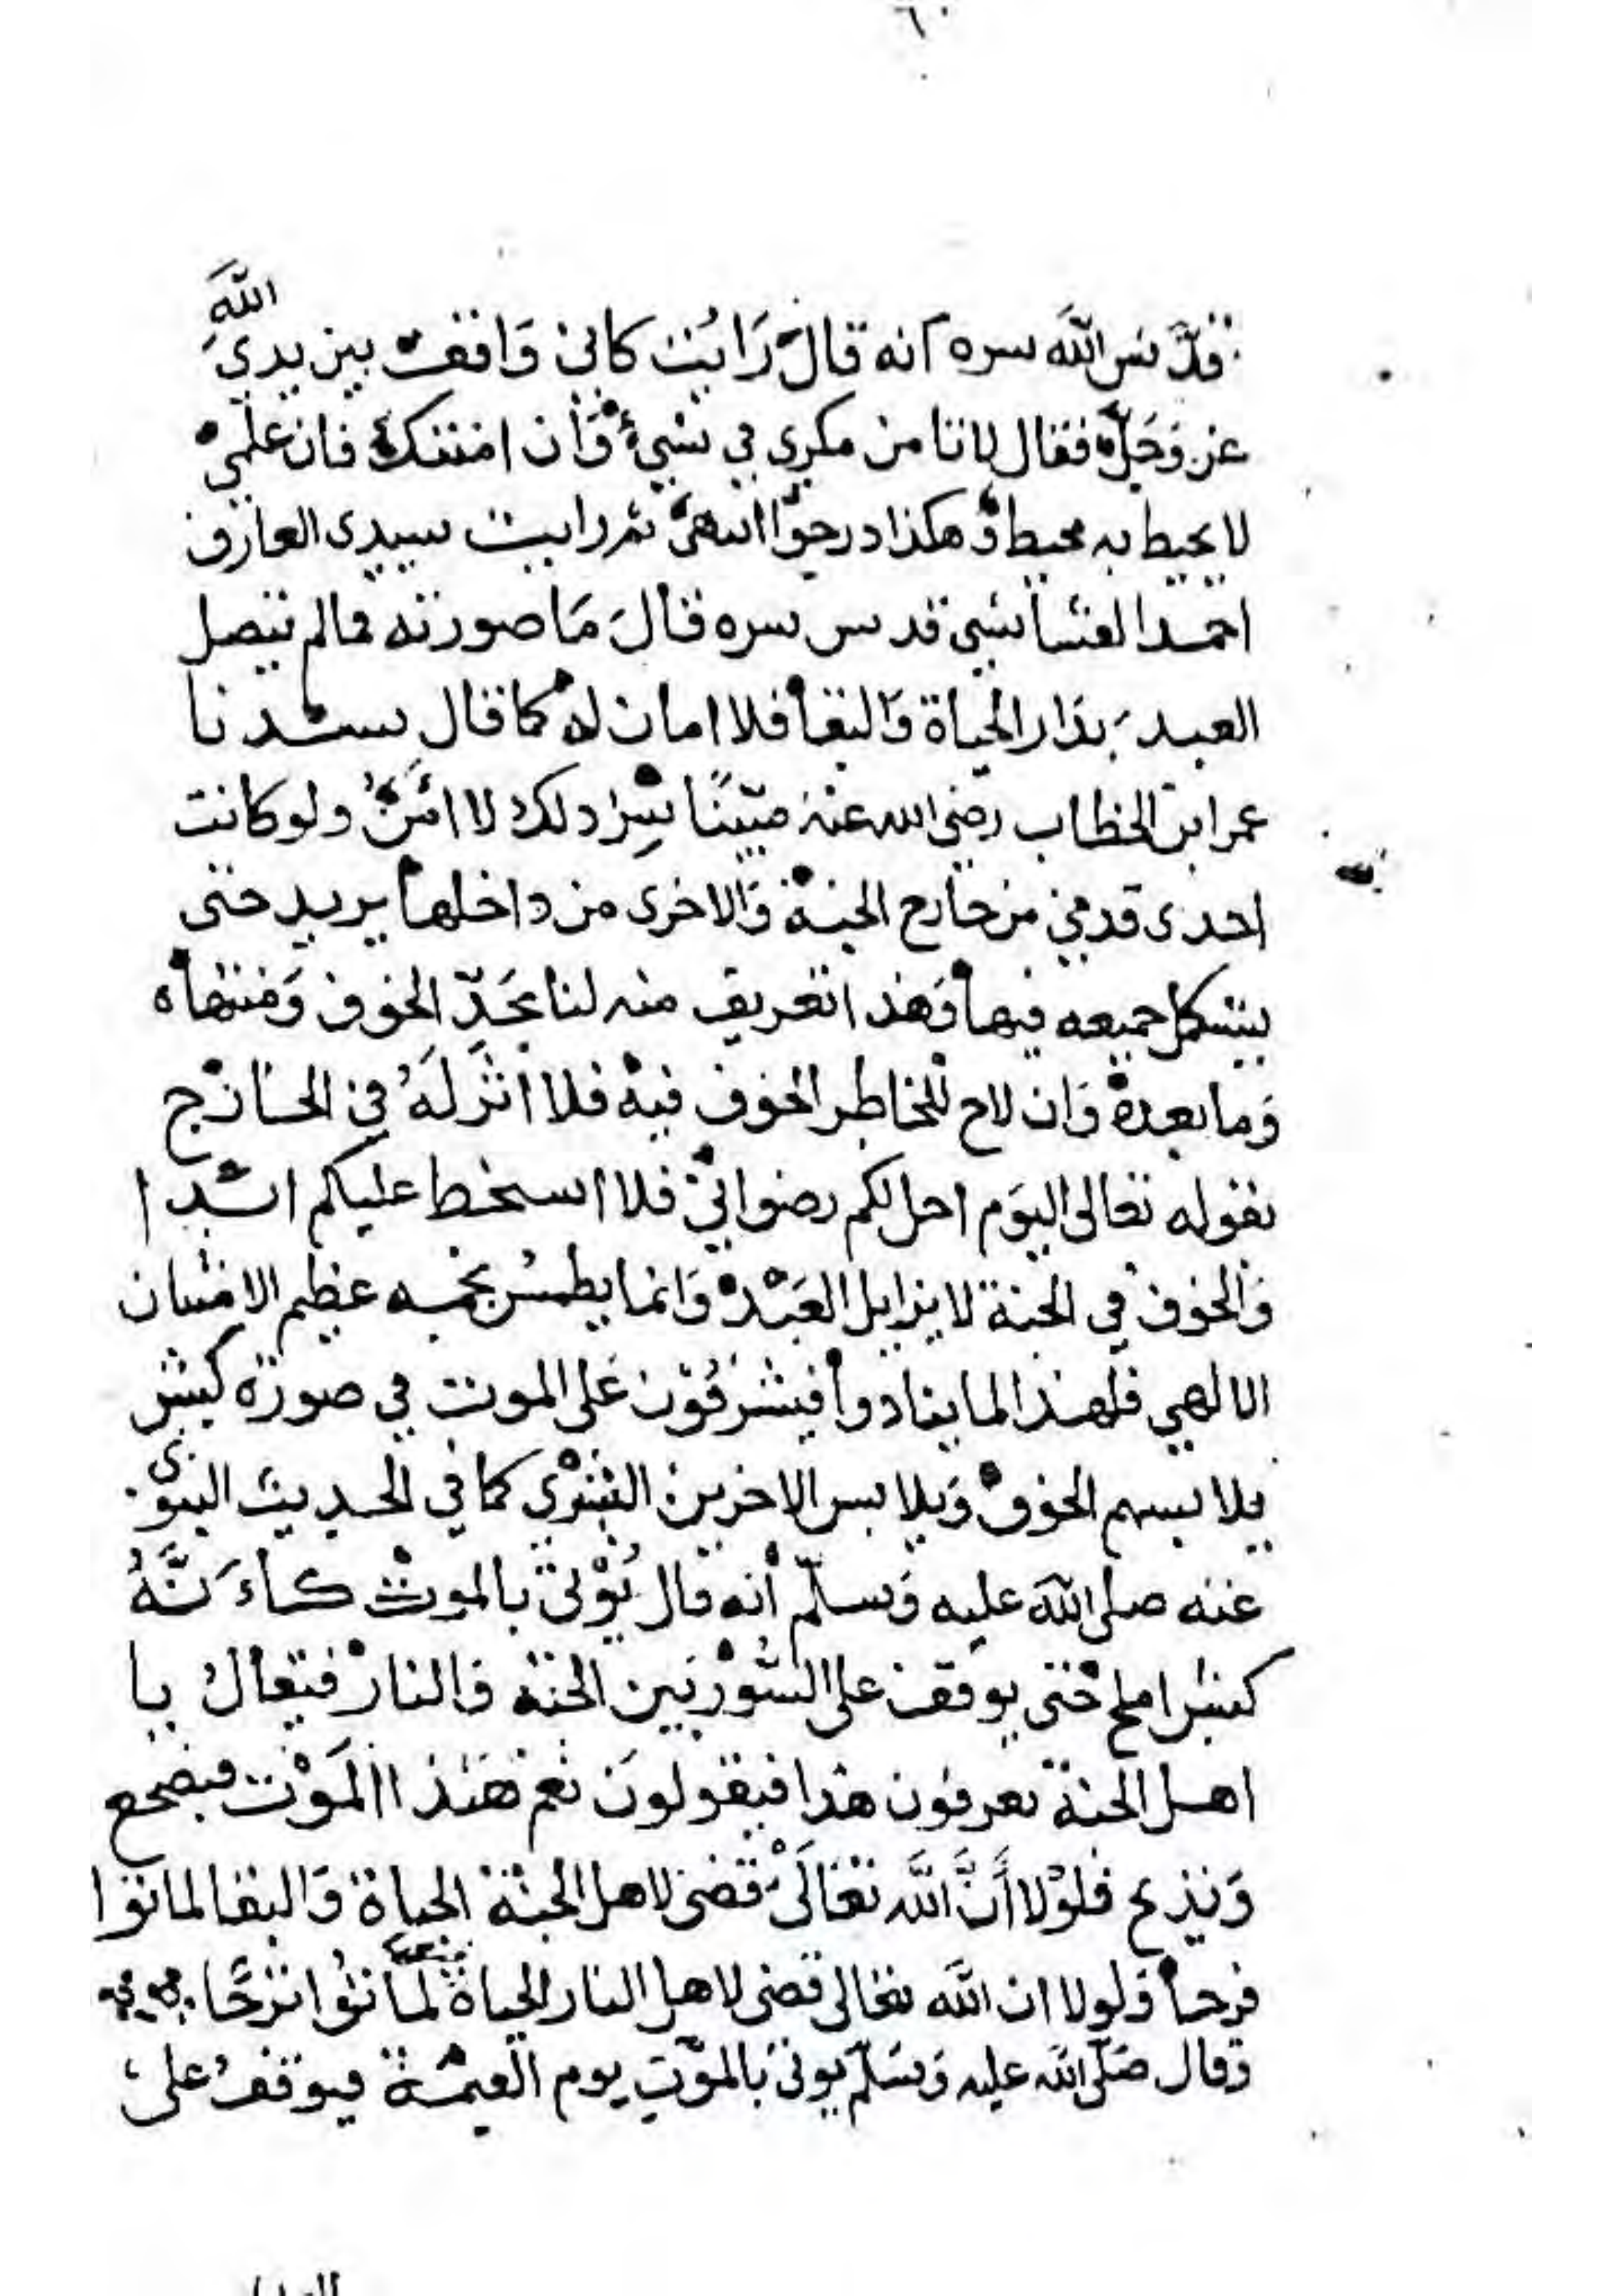 ٦٠
قدس الله سره انه قال رَايُت كاني وَاقف بين يدي الله
عز وَجَلّ فقال لا تامن مكري في شيء وَان امنتك فان علمي
لا يحيط به محيط وَهكذا درجوا انتهى ثم رايت سيدي العارف
احمد القشاشي قدس سره قالَ مَا صورته فما لم يتصل
العبد بدَار الحياة وَالبقا فلا امان له كما قال سيدنا
عمر ابن الخطاب رضي الله عنه مبيّنًا سِرّ ذلك لا اَمَنُ ولو كانت
احدى قدمي من خارج الجنة وَالاخرى من داخلها يريد حتى
يستكمل جميعه فيها وَهذا تعريف منه لنا بحَدّ الخوف وَمنتهاه
وَما بعده وَان لاح للخاطر الخوف فيه فلا اثَر لَهُ في الخارج
بقوله تعالى اليَوم احل لكم رضواني فلا اسخط عليكم ابدا
وَالخوف في الجنة لا يزايل العَبْد وَانما يطمسُ نجمه عظيم الامتنان
الالهي فلهذا لما ينادوا فيشرفُوْن عَلى الموت في صورة كبش
يلابسهم الخوف وَيلابس الاخرين البشرى كما في الحديث النبوي
عنه صلى الله عليه وَسلّم انه قال يُوْتَى بالموت كاَنَّهُ
كبش املح حتى يوقف على السُّوْر بَين الجنة وَالنار فيقالُ يا
اهل الجنة تعرفون هذا فيقولونَ نعم هَذا المَوْت فيضجع
وَيذبح فلوْلا أَنَّ اللَّه تعَالَى قضى لاهل الجنة الحياة وَالبقا لماتوا
فرحا وَلولا ان اللَّه تعالى قضى لاهل النار الحياة لمَاتوُا ترَحًا
وَقال صَلّى الله عليه وَسَلّم يوتى بَالموْتِ يوم القيمة فيوقفُ على